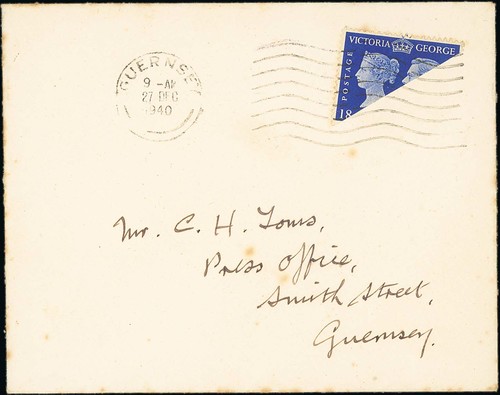 GUERNSE
9 – AM
27 DEC
1940
VICTORIA GEORGE
POSTAGE
18
Mr. C. H. Toms,
Press Office,
Smith Street,
Guernsey.